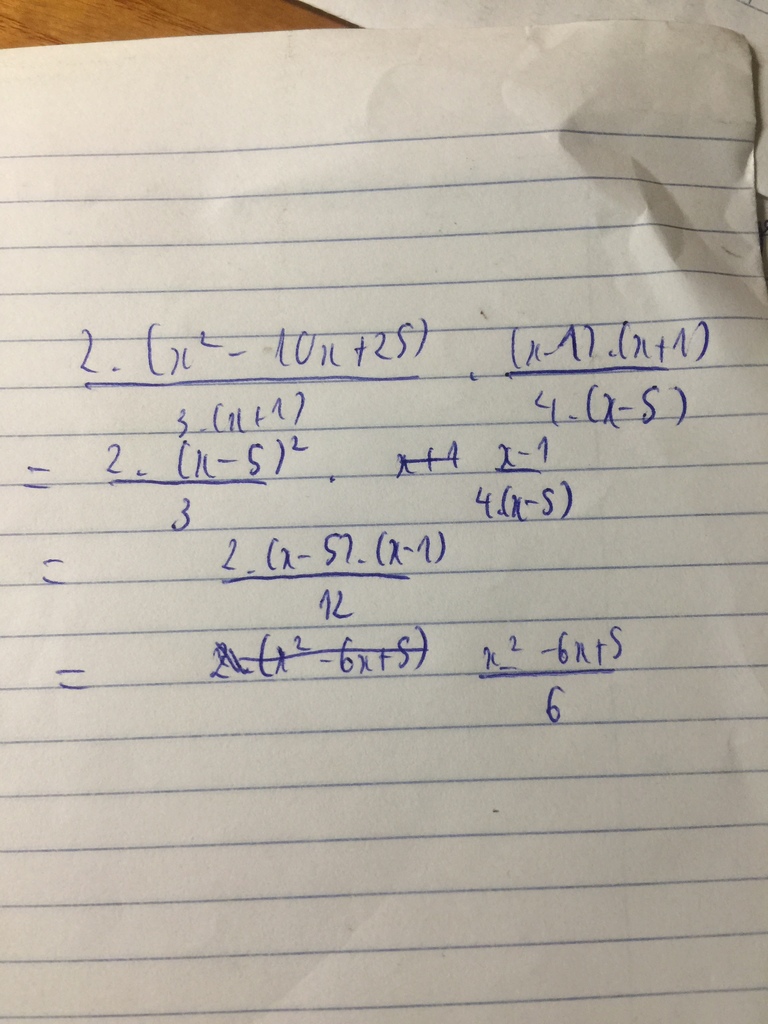 2.(x² - 10x + 25) . (x-1).(x+1)
3.(x+1) 4.(x-5)
= 2.(x-5)² . x+1 x-1
3 4.(x-5)
= 2.(x-5).(x-1)
12
= 2.(x² - 6x+5) x² - 6x+5
6